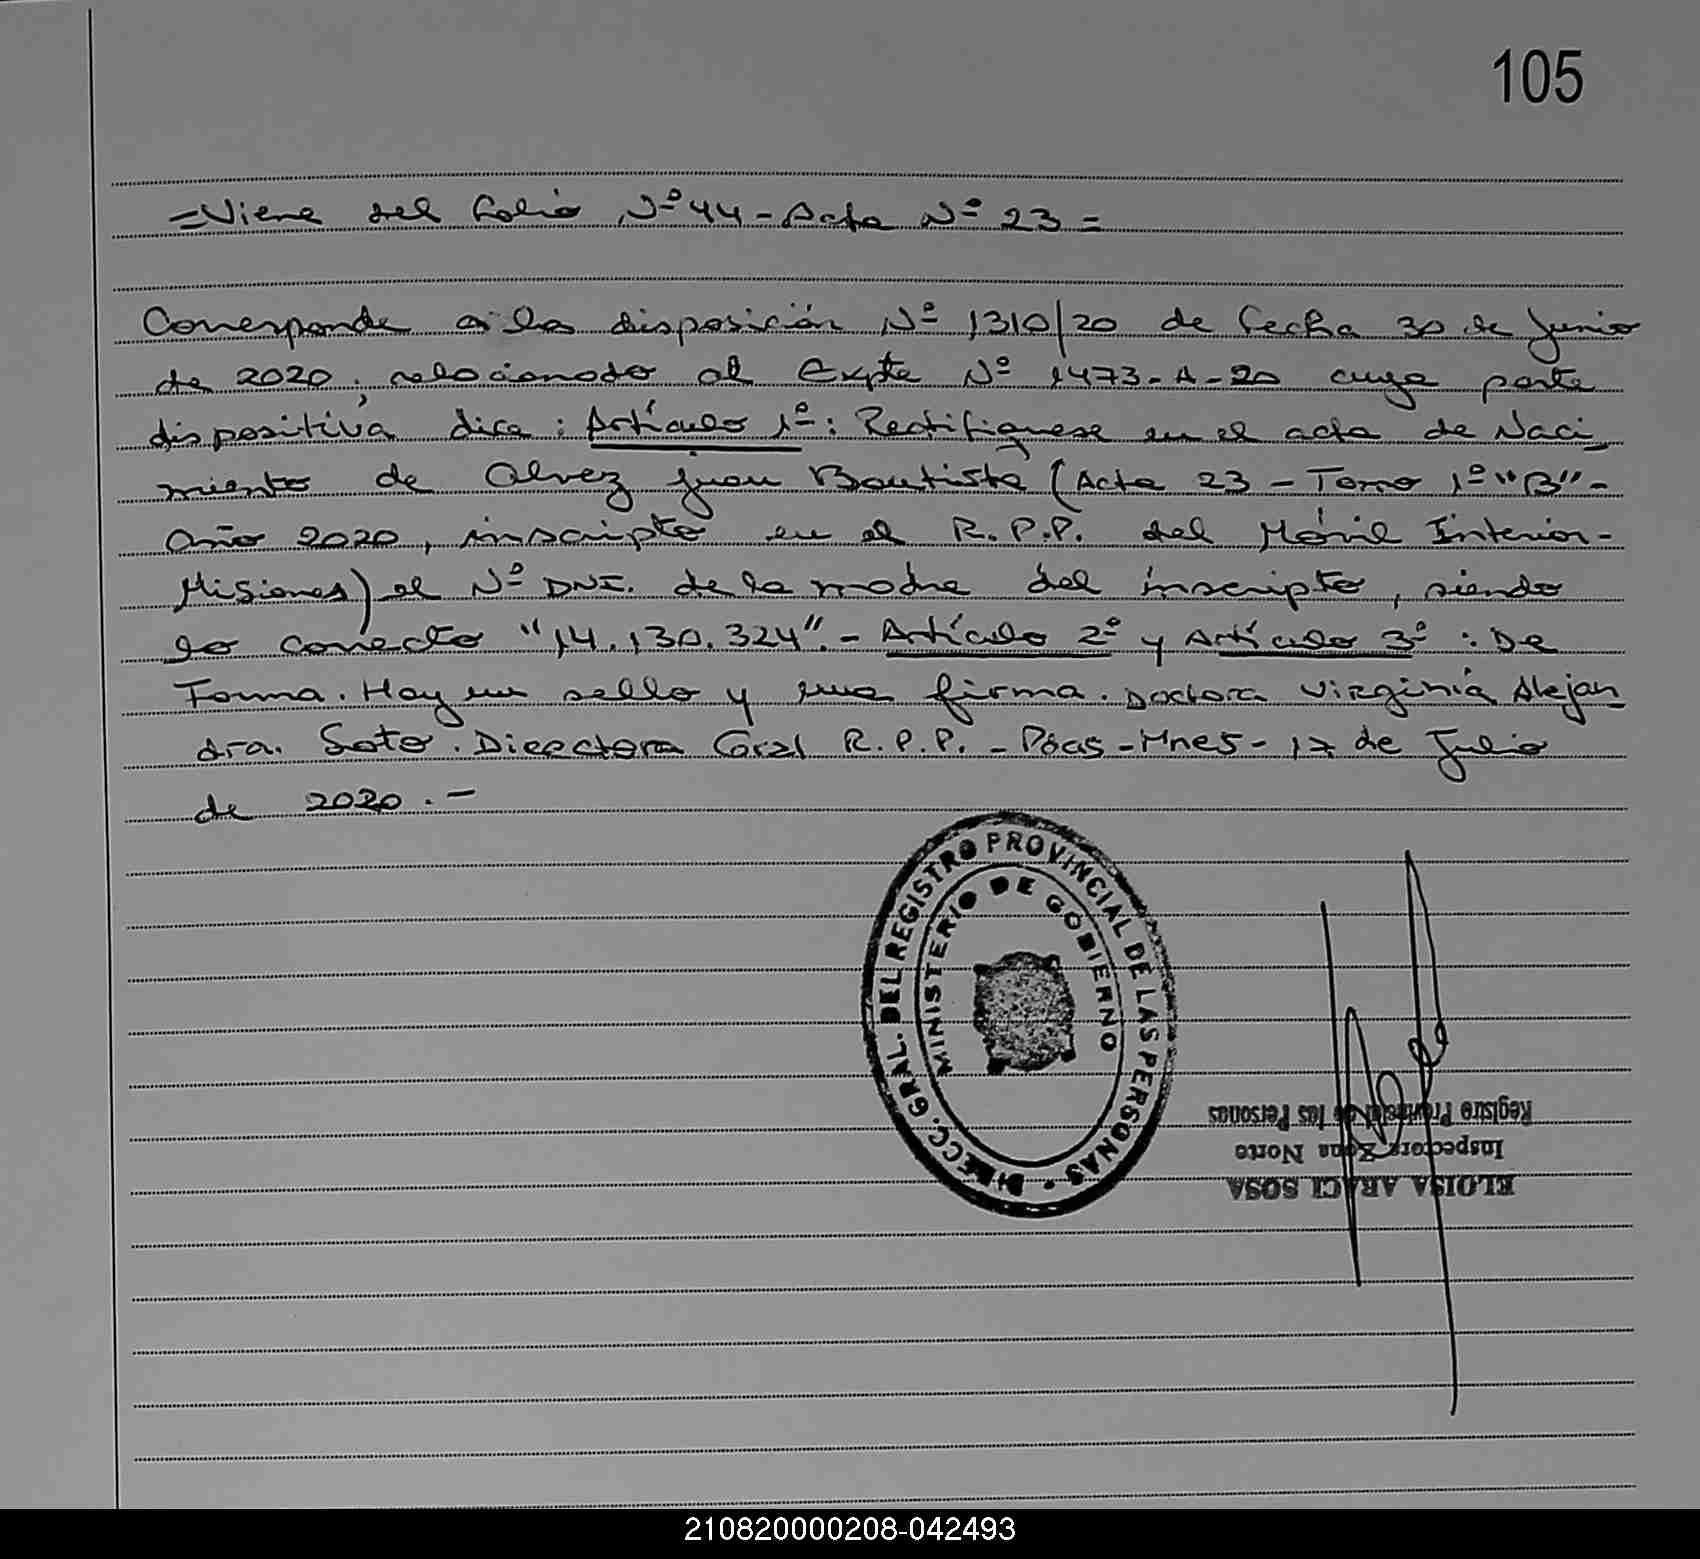 105
=Viene del folio Nº 44 - Acta Nº 23 =
Corresponde a la disposición Nº 1310/20 de fecha 30 de Junio
de 2020, relacionado al Expte Nº 1473-A-20 cuya parte
dispositiva dice: Artículo 1º: Rectifiquese en el acta de Naci
miento de Alvez Juan Bautista (Acta 23 - Tomo 1º "B" -
Año 2020, inscripto en el R.P.P. del Móvil Interior-
Misiones) el Nº DNI. de la madre del inscripto, siendo
lo correcto "14.130.324". - Artículo 2º y Artículo 3º: De
Forma. Hay un sello y una firma. Doctora Virginia Alejan
dra. Soto. Directora Gral R.P.P. - Pdas - Mnes - 17 de Julio
de 2020. -
DIRECC. GRAL. DEL REGISTRO PROVINCIAL DE LAS PERSONAS
MINISTERIO DE GOBIERNO
ELOISA ARACI SOSA
Inspectora Zona Norte
Registro Provincial de las Personas
210820000208-042493